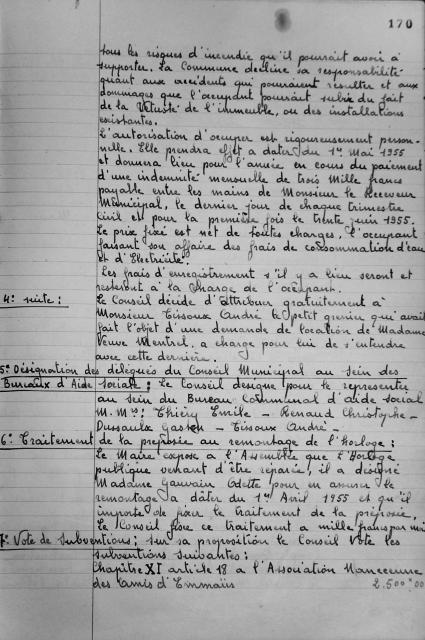 170
tous les risques d'incendie qu'il pourrait avoir à
supporter. La Commune décline sa responsabilité
quant aux accidents qui pourraient résulter et aux
dommages que l'occupant pourrait subir du fait
de la Vétusté de l'immeuble, ou des installations
existantes.
L'autorisation d'occuper est rigoureusement person-
nelle. Elle prendra effet à dater du 1er Mai 1955
et donnera lieu pour l'année en cours au paiement
d'une indemnité mensuelle de trois Mille francs
payable entre les mains de Monsieur le Receveur
Municipal, le dernier jour de chaque trimestre
civil et pour la première fois le trente juin 1955.
Le prix fixé est net de toutes charges, l'occupant
faisant son affaire des frais de consommation d'eau
et d'Electricité.
Les frais d'enregistrement s'il y a lieu seront et
resteront à la Charge de l'occupant.
4° suite : Le Conseil décide d'attribuer gratuitement à
Monsieur Tissoux André le petit grenier qui avait
fait l'objet d'une demande de location de Madame
Veuve Mentrel, a charge pour lui de s'entendre
avec cette dernière.
5° Désignation des délégués du Conseil Municipal au sein des
Bureaux d'Aide sociale : Le Conseil désigne pour le représenter
au sein du Bureau Communal d'aide social
M.M.rs : Thiéry Emile - Renaud Christophe -
Dussaulx Gaston - Tisoux André -
6° Traitement de la préposée au remontage de l'Horloge :
Le Maire expose à l'Assemblée que l'Horloge
publique venant d'être réparée, il a désigné
Madame Gauvain Odette pour en assurer le
remontage à dater du 1er Avril 1955 et qu'il
importe de fixer le traitement de la préposée.
Le Conseil fixe ce traitement a mille francs par
7° Vote de subventions ; sur sa proposition le Conseil Vote les
subventions suivantes :
Chapitre XI article 18 a l'Association Nanceenne
des Amis d'Emmaüs 2.500 00